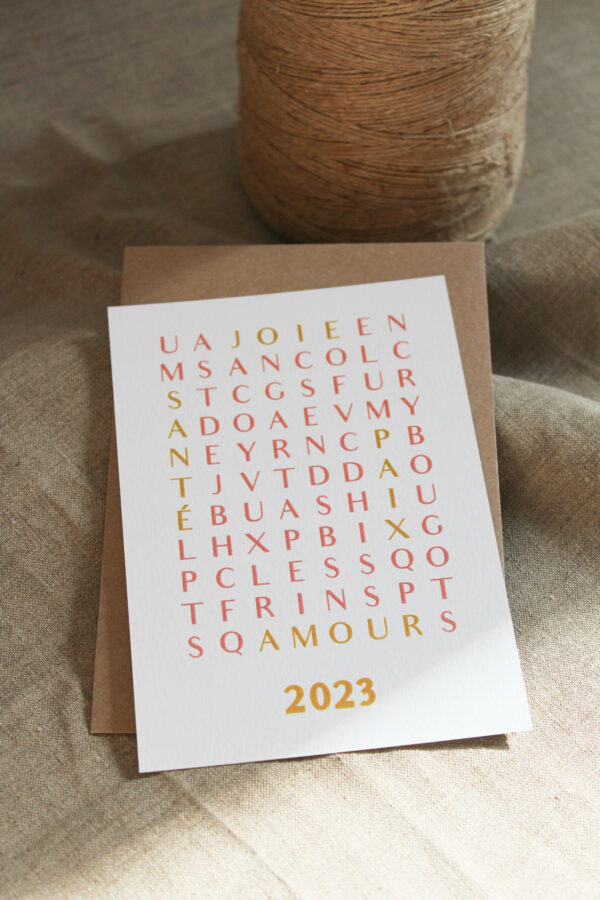 U A J O I E E N
M S A N C O L C
S T C G S F U R
A D O A E V M Y
N E Y R N C P B
T J V T D D A O
É B U A S H I U
L H X P B I X G
P C L E S S Q O
T F R I N S P T
S Q A M O U R S
2023